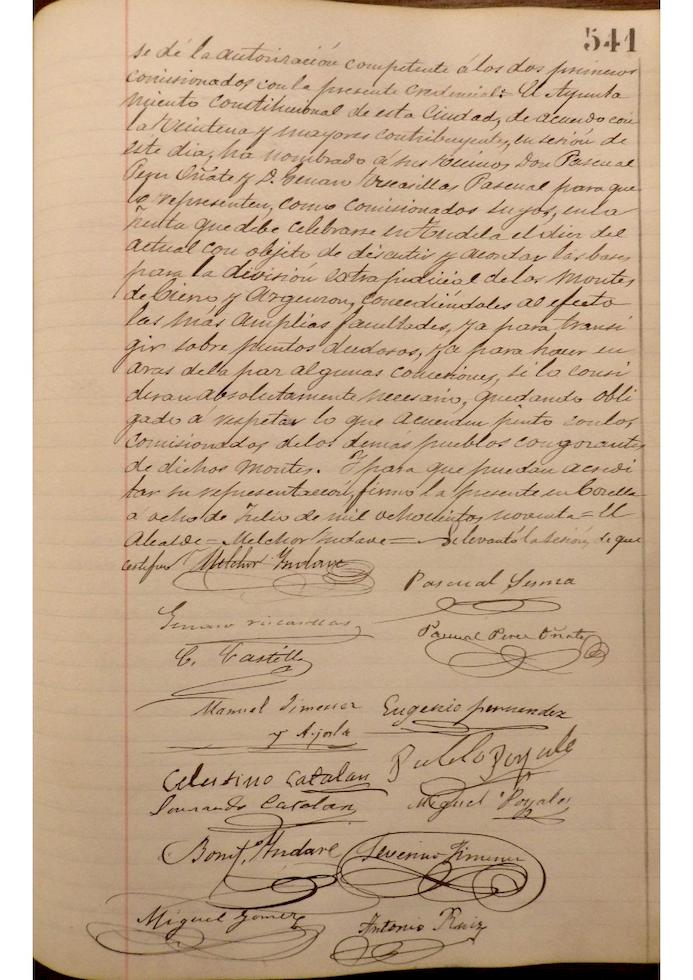 541
se dé la autorización competente á los dos primeros
comisionados con la presente credencial: El Ayunta
miento Constitucional de esta Ciudad, de acuerdo con
la Veintena y mayores contribuyentes, en sesión de
este dia, ha nombrado a sus vecinos Don Pascual
Perez Oñate y D. Genaro Viscasillas Pascual para que
lo representen, como comisionados suyos, en la
Junta que debe celebrarse en Tudela el dia del
actual con objeto de discutir y acordar las bases
para la división extrajudicial de los Montes
de Cierzo y Argenzon, concediéndoles al efecto
las más amplias facultades, ya para transi
gir sobre puntos dudosos, ya para hacer en
aras de la paz algunas concesiones, si lo consi
deran absolutamente necesario, quedando obli
gado á respetar lo que acuerden junto con los
comisionados de los demás pueblos congozantes
de dichos Montes. Y para que puedan acredi
tar su representación, firmo la presente en Corella
á ocho de Julio de mil ochocientos noventa = El
Alcalde = Melchor Yndave = Se levantó la sesión, de que
certifico Melchor Yndave
Pascual Sesma
Genaro Viscasillas
Pascual Perez Oñate
C. Castillo
Manuel Jimenez
y Ayala
Eugenio Fernandez
Celestino Catalan
Pablo Poyales
Catalan
Miguel Poyales
Bonif. Yndave
Severino Jimenez
Miguel Gomez
Antonio Ruiz